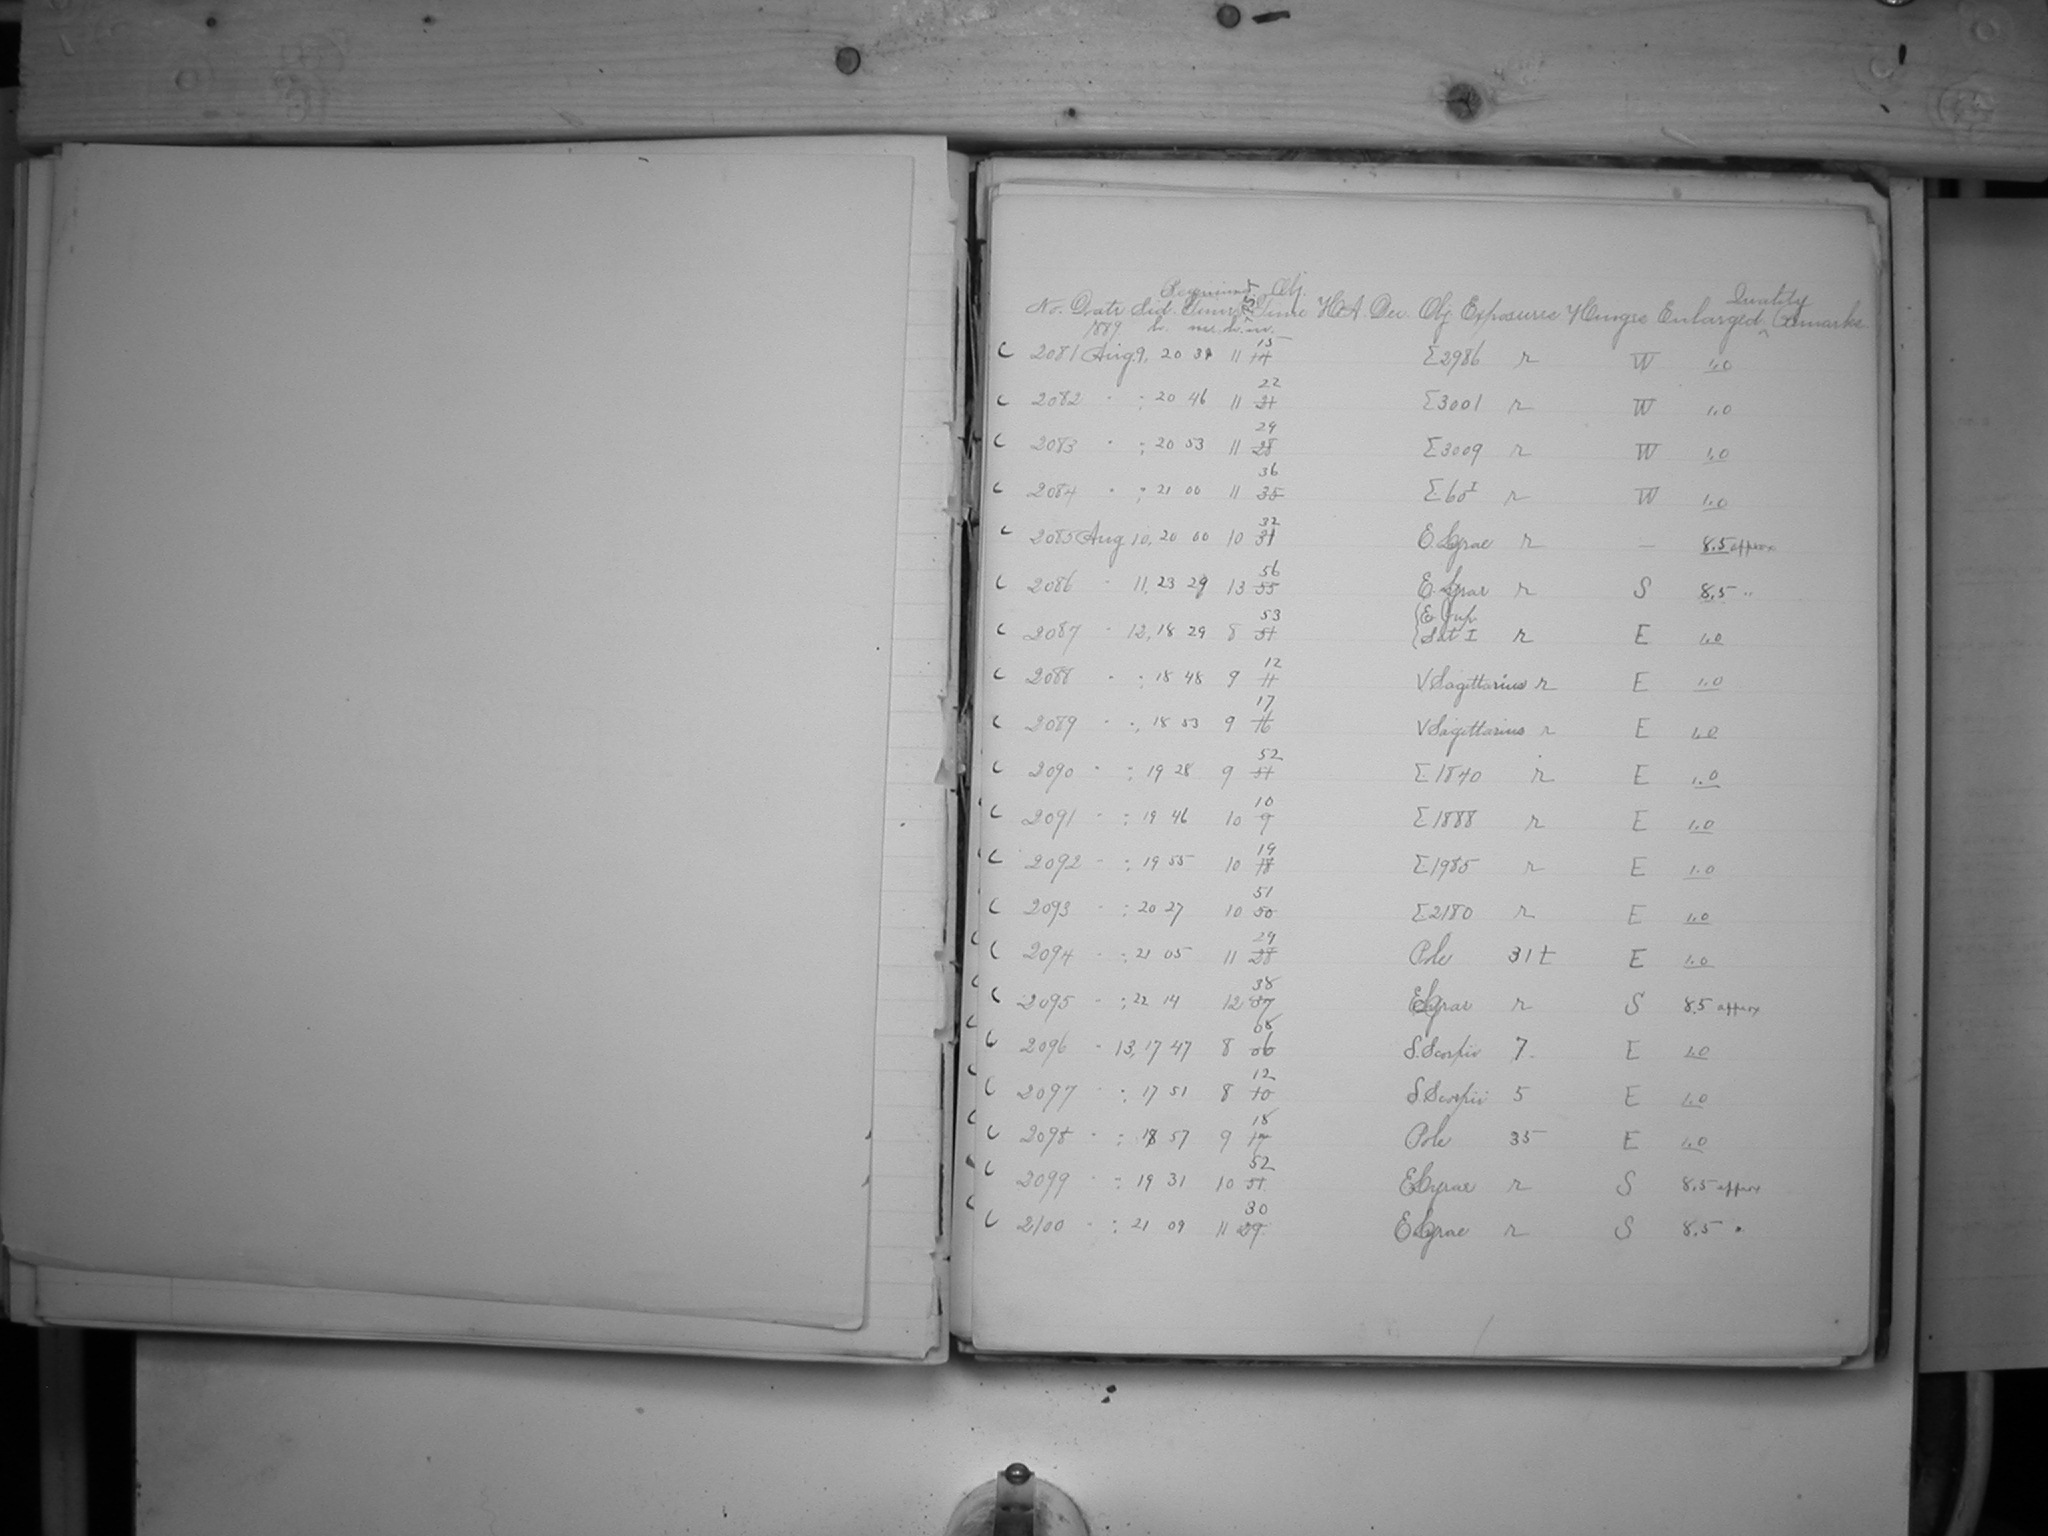 Beginning Obj. Quality
No. Date Sid. Time EST Time H A Dec. Obj Exposures Hinges Enlarged ^ Remarks
1889 h. m. h. m.
15
C 2081 Aug. 9, 20 39 11 14 Σ2986 r W 1.0
22
C 2082 " ; 20 46 11 21 Σ3001 r W 1.0
29
C 2083 " ; 20 53 11 28 Σ3009 r W 1.0
36
C 2084 " ; 21 00 11 35 Σ60 I r W 1.0
32
C 2085 Aug 10, 20 00 10 31 E. Lyrae r — 8.5 approx
56
C 2086 " 11, 23 29 13 55 E. Lyrae r S 8.5 "
53 {E Jup.
C 2087 " 12, 18 29 8 51 {Sat I r E 1.0
12
C 2088 " ; 18 48 9 11 V Sagittarius r E 1.0
17
C 2089 " ; 18 53 9 16 V Sagittarius r E 1.0
52
C 2090 " ; 19 28 9 51 Σ1840 r E 1.0
10
C 2091 " ; 19 46 10 9 Σ1888 r E 1.0
19
C 2092 " ; 19 55 10 18 Σ1985 r E 1.0
51
C 2093 " ; 20 27 10 50 Σ2180 r E 1.0
29
C 2094 " ; 21 05 11 28 Pole 31t E 1.0
38
C 2095 " ; 22 14 12 37 E Lyrae r S 8.5 approx
08
C 2096 " 13, 17 47 8 06 S. Scorpii 7. E 1.0
12
C 2097 " ; 17 51 8 10 S. Scorpii 5 E 1.0
18
C 2098 " ; 18 57 9 17 Pole 35 E 1.0
52
C 2099 " ; 19 31 10 51 E Lyrae r S 8.5 approx
30
C 2100 " ; 21 09 11 29 E. Lyrae r S 8.5 "